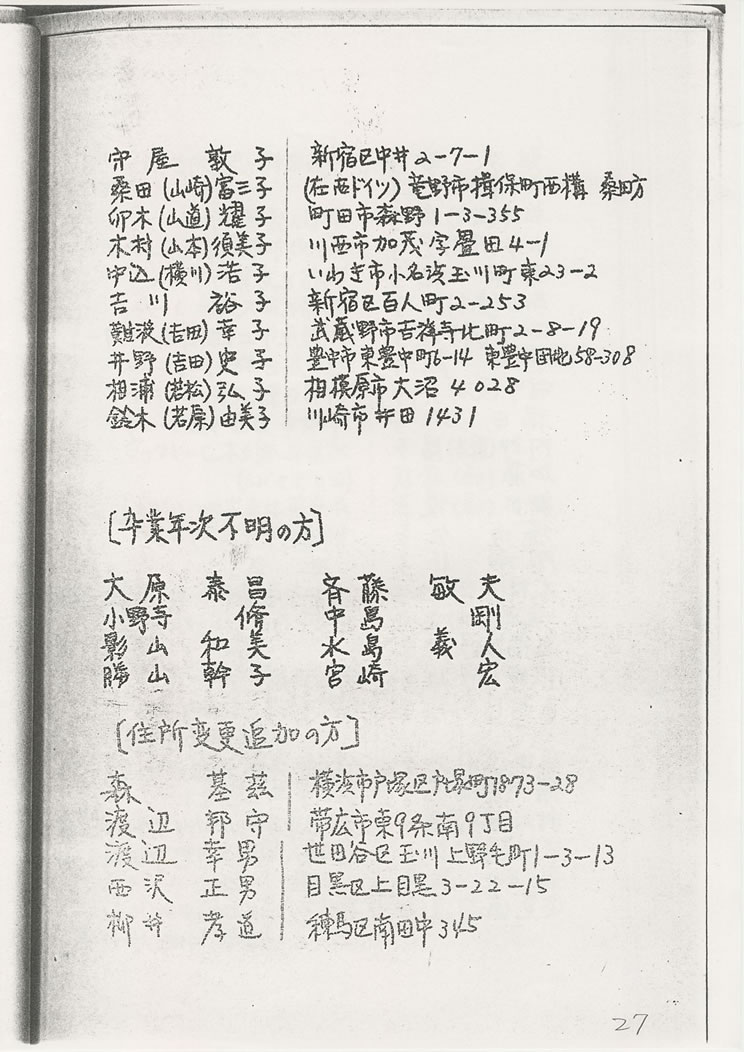 守屋 敦子 新宿区中井2-7-1
桑田(山崎)富三子 (在西ドイツ) 竜野市揖保町西構 桑田方
卯木(山道)耀子 町田市森野1-3-355
木村(山本)須美子 川西市加茂字畳田4-1
中込(横川)浩子 いわき市小名浜玉川町東23-2
吉川 裕子 新宿区百人町2-253
難波(吉田)幸子 武蔵野市吉祥寺北町2-8-19
井野(吉田)史子 豊中市東豊中町6-14 東豊中団地58-308
相浦(若松)弘子 相模原市大沼4028
鈴木(若原)由美子 川崎市井田1431
[卒業年次不明の方]
大原 泰昌 斉藤 敏夫
小野寺 脩 中島 剛
影山 和美 水島 義人
勝山 幹子 宮崎 宏
[住所変更追加の方]
森 基茲 横浜市戸塚区戸塚町1873-28
渡辺 邦守 帯広市東9条南9丁目
渡辺 幸男 世田谷区玉川上野毛町1-3-13
西沢 正男 目黒区上目黒3-22-15
柳井 孝道 練馬区南田中345
27